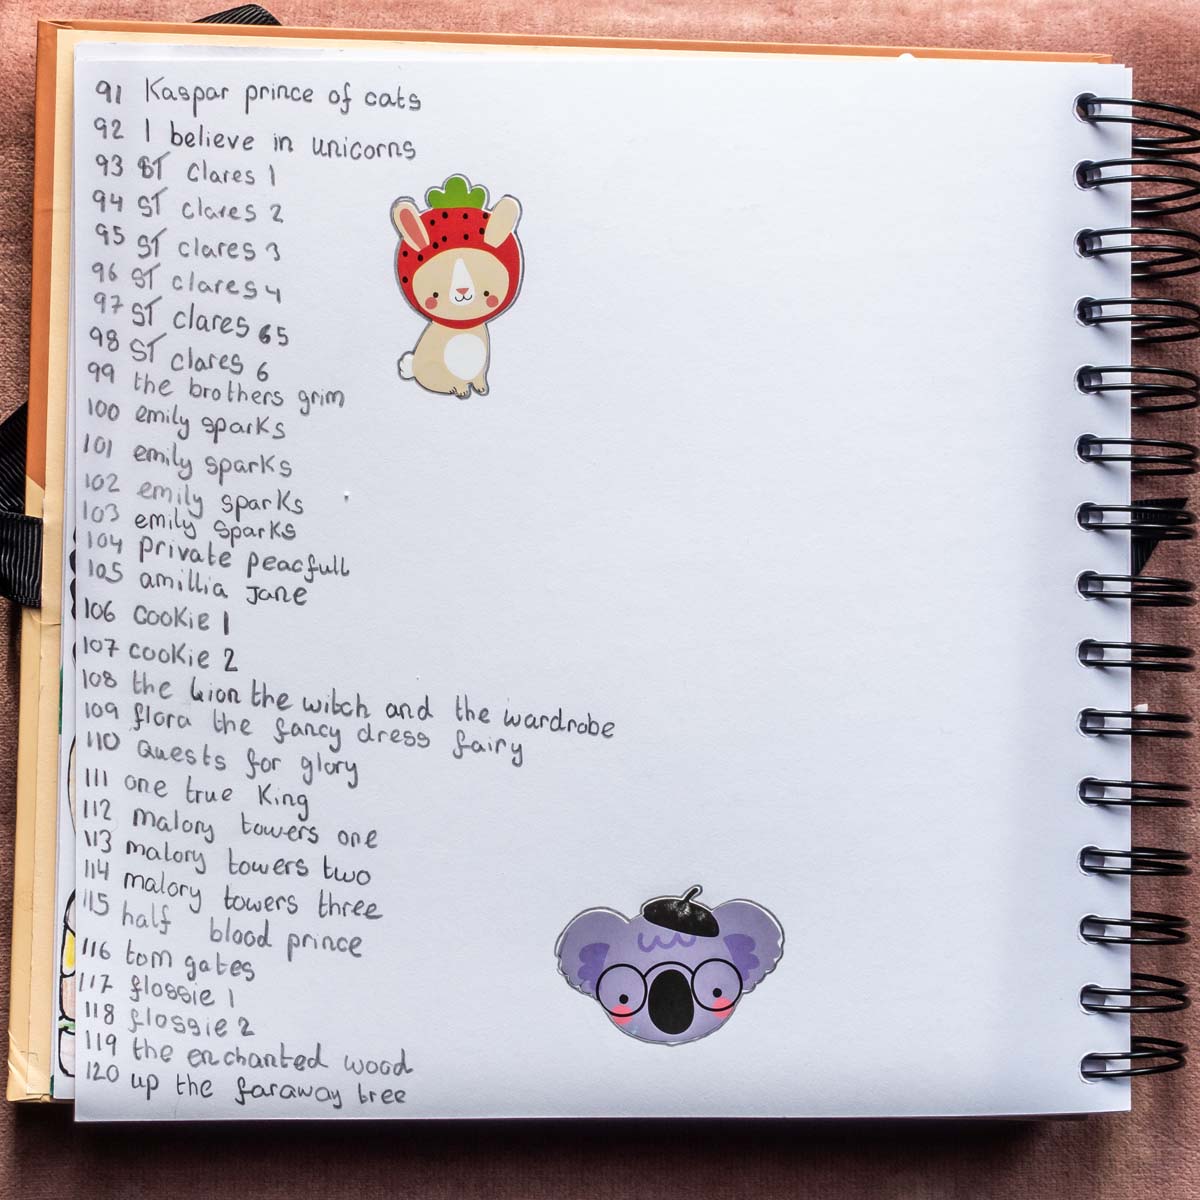 91 Kaspar prince of cats
92 I believe in unicorns
93 ST Clares 1
94 ST clares 2
95 ST clares 3
96 ST clares 4
97 ST clares 65
98 ST clares 6
99 the brothers grim
100 emily sparks
101 emily sparks
102 emily sparks
103 emily sparks
104 private peacfull
105 amillia jane
106 cookie 1
107 cookie 2
108 the Lion the witch and the wardrobe
109 flora the fancy dress fairy
110 Quests for glory
111 one true King
112 malory towers one
113 malory towers two
114 malory towers three
115 half blood prince
116 tom gates
117 flossie 1
118 flossie 2
119 the enchanted wood
120 up the faraway tree